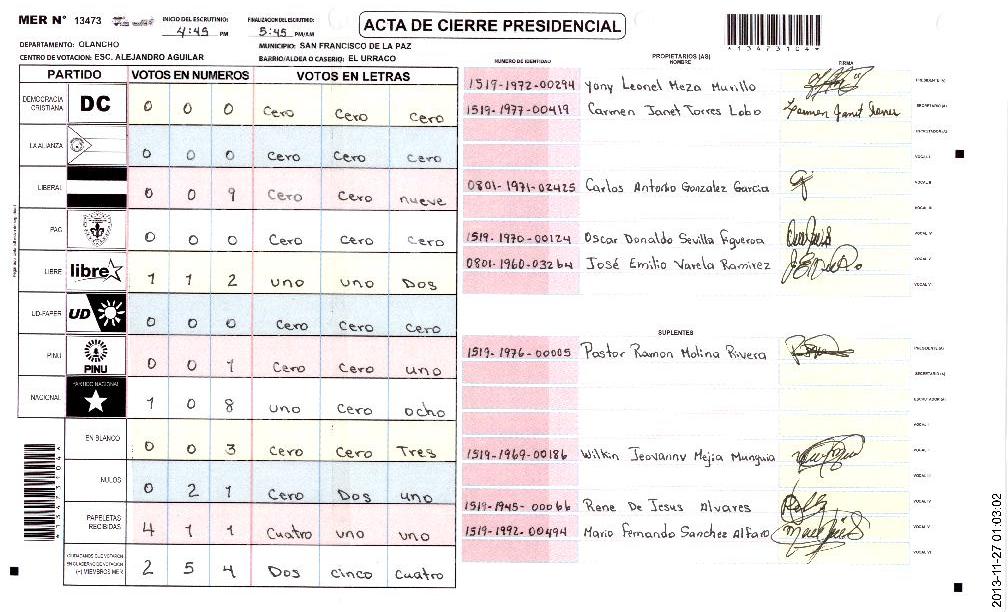 MER N° 13473
INICIO DEL ESCRUTINIO:
4:45 PM
FINALIZACION DEL ESCRUTINIO:
5:45 PM/AM
ACTA DE CIERRE PRESIDENCIAL
DEPARTAMENTO: OLANCHO
MUNICIPIO: SAN FRANCISCO DE LA PAZ
CENTRO DE VOTACION: ESC. ALEJANDRO AGUILAR
BARRIO/ALDEA O CASERIO: EL URRACO
PARTIDO VOTOS EN NUMEROS VOTOS EN LETRAS
DEMOCRACIA CRISTIANA DC 0 0 0 cero cero cero
LA ALIANZA 0 0 0 cero cero cero
LIBERAL 0 0 9 cero cero nueve
PAC 0 0 0 cero cero cero
LIBRE libre 1 1 2 uno uno Dos
UD-FAPER UD 0 0 0 cero cero cero
PINU PINU 0 0 1 cero cero uno
NACIONAL PARTIDO NACIONAL 1 0 8 uno cero ocho
EN BLANCO 0 0 3 cero cero Tres
NULOS 0 2 1 cero Dos uno
PAPELETAS RECIBIDAS 4 1 1 Cuatro uno uno
CIUDADANOS QUE VOTARON EN CUADERNO DE VOTACION (+) MIEMBROS MER 2 5 4 Dos cinco cuatro
NUMERO DE IDENTIDAD
PROPIETARIOS (AS)
NOMBRE
FIRMA
1519-1972-00294 Yony Leonel Meza Murillo PRESIDENTE(A)
1519-1977-00419 Carmen Janet Torres Lobo SECRETARIO (A)
ESCRUTADOR (A)
VOCAL I
0801-1971-02425 Carlos Antonio Gonzalez Garcia VOCAL II
VOCAL III
1519-1970-00124 Oscar Donaldo Sevilla Figueroa VOCAL IV
0801-1960-03264 José Emilio Varela Ramirez VOCAL V
VOCAL VI
SUPLENTES
1519-1976-00005 Pastor Ramon Molina Rivera PRESIDENTE (A)
SECRETARIO (A)
ESCRUTADOR (A)
VOCAL I
1519-1969-00186 Wilkin Jeovanny Mejia Munguia VOCAL II
VOCAL III
1519-1945-00066 Rene De Jesus Alvares VOCAL IV
1519-1992-00494 Mario Fernando Sanchez Alfaro VOCAL V
VOCAL VI
2013-11-27 01:03:02